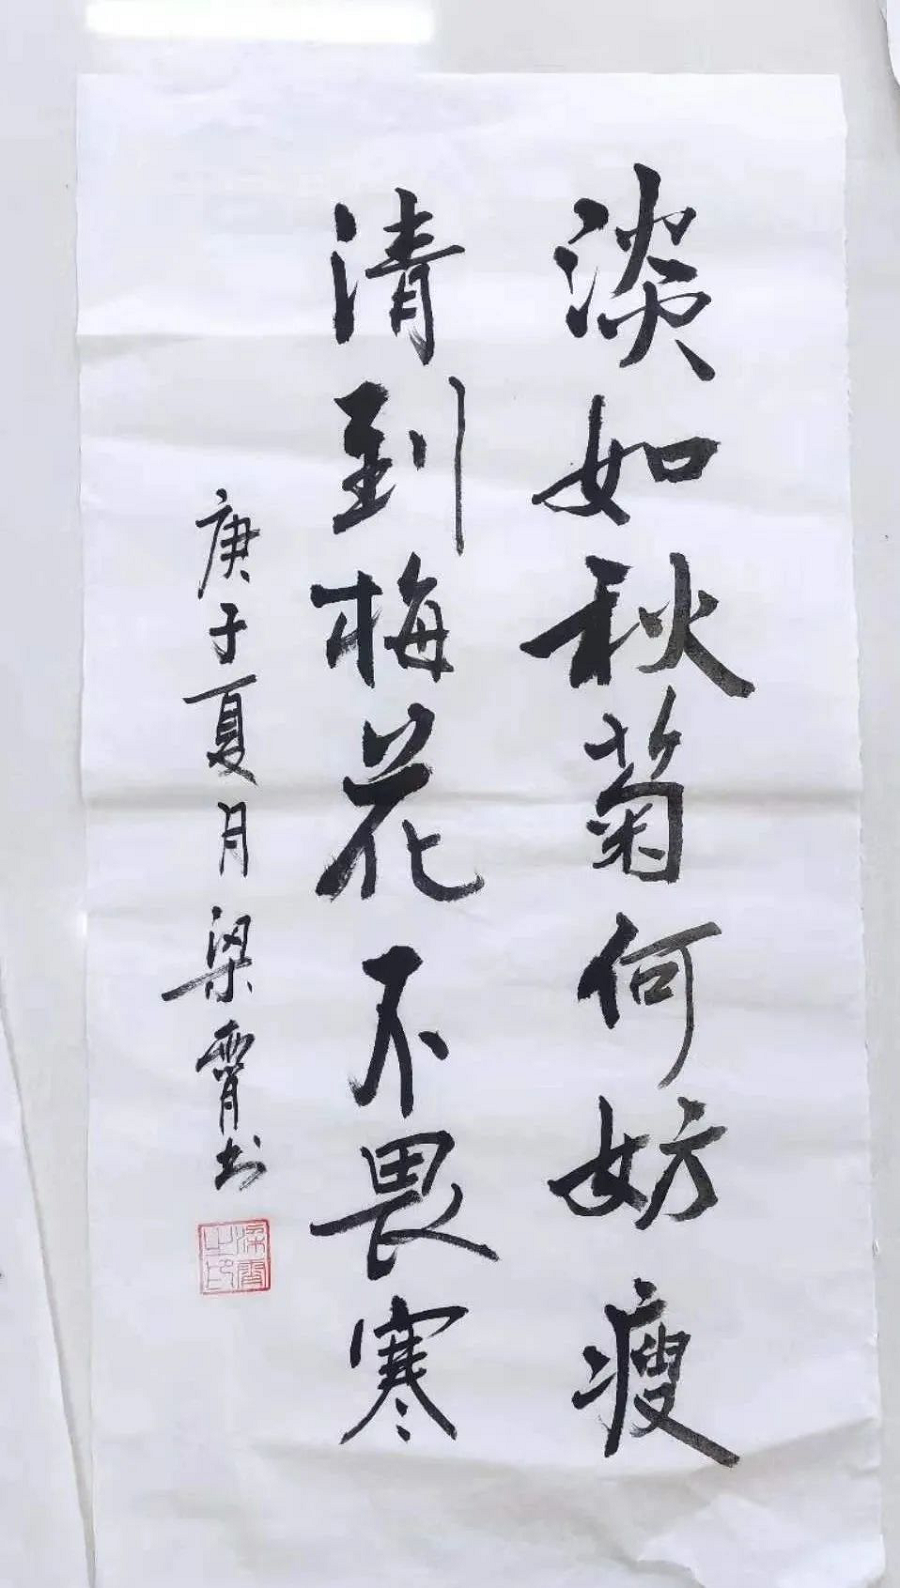 淡如秋菊何妨瘦
清到梅花不畏寒
庚子夏月梁霄书
梁霄之印